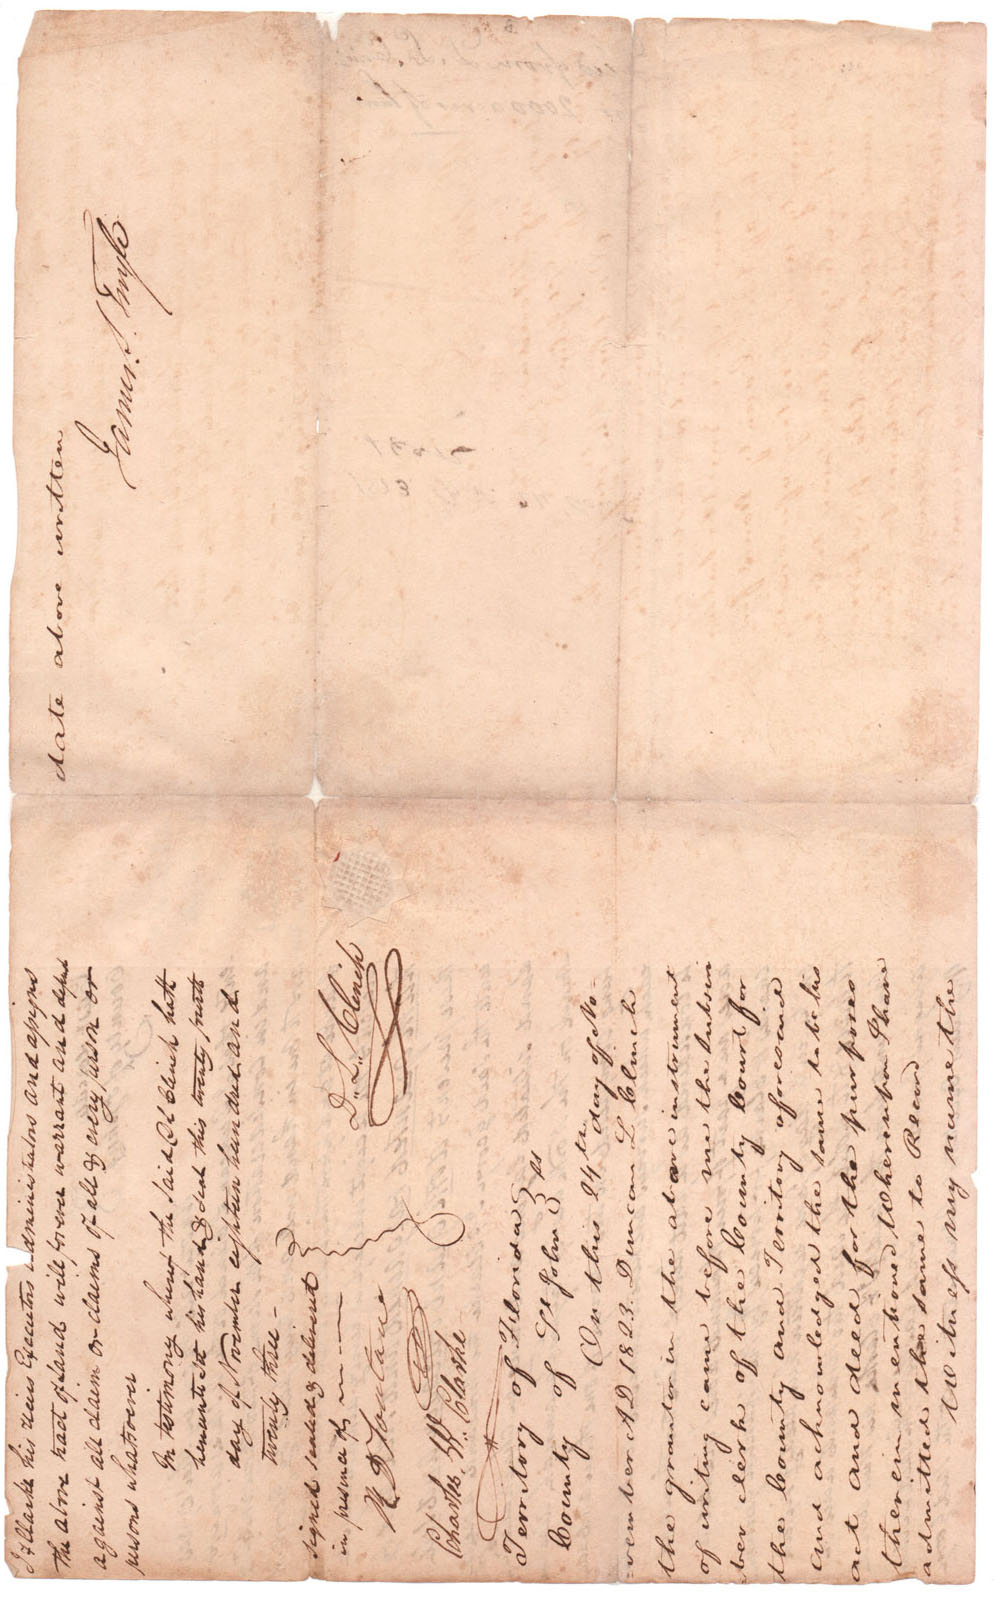 J Clarke his Heirs Executors Administrators and assigns
the above tract of land will forever warrant and defend
against all claim or claims of all & every person or
persons whatsoever
In testimony whereof the Said D L Clinch hath
hereunto set his hand & seal this twenty fourth
day of November eighteen hundred and
twenty three -
signed sealed & delivered
in presence of
D. L. Clinch
Charles W. Clarke
Territory of Florida } ss
County of St John }
On this 24th day of No-
vember AD 1823. Duncan L Clinch
the grantor in the above instrument
of writing came before me the Subscri
ber clerk of the County Court for
the County and Territory aforesaid
and acknowledged the same to be his
act and deed for the purposes
therein mentioned Whereupon I have
admitted the same to Record
Witness my name the
date above written